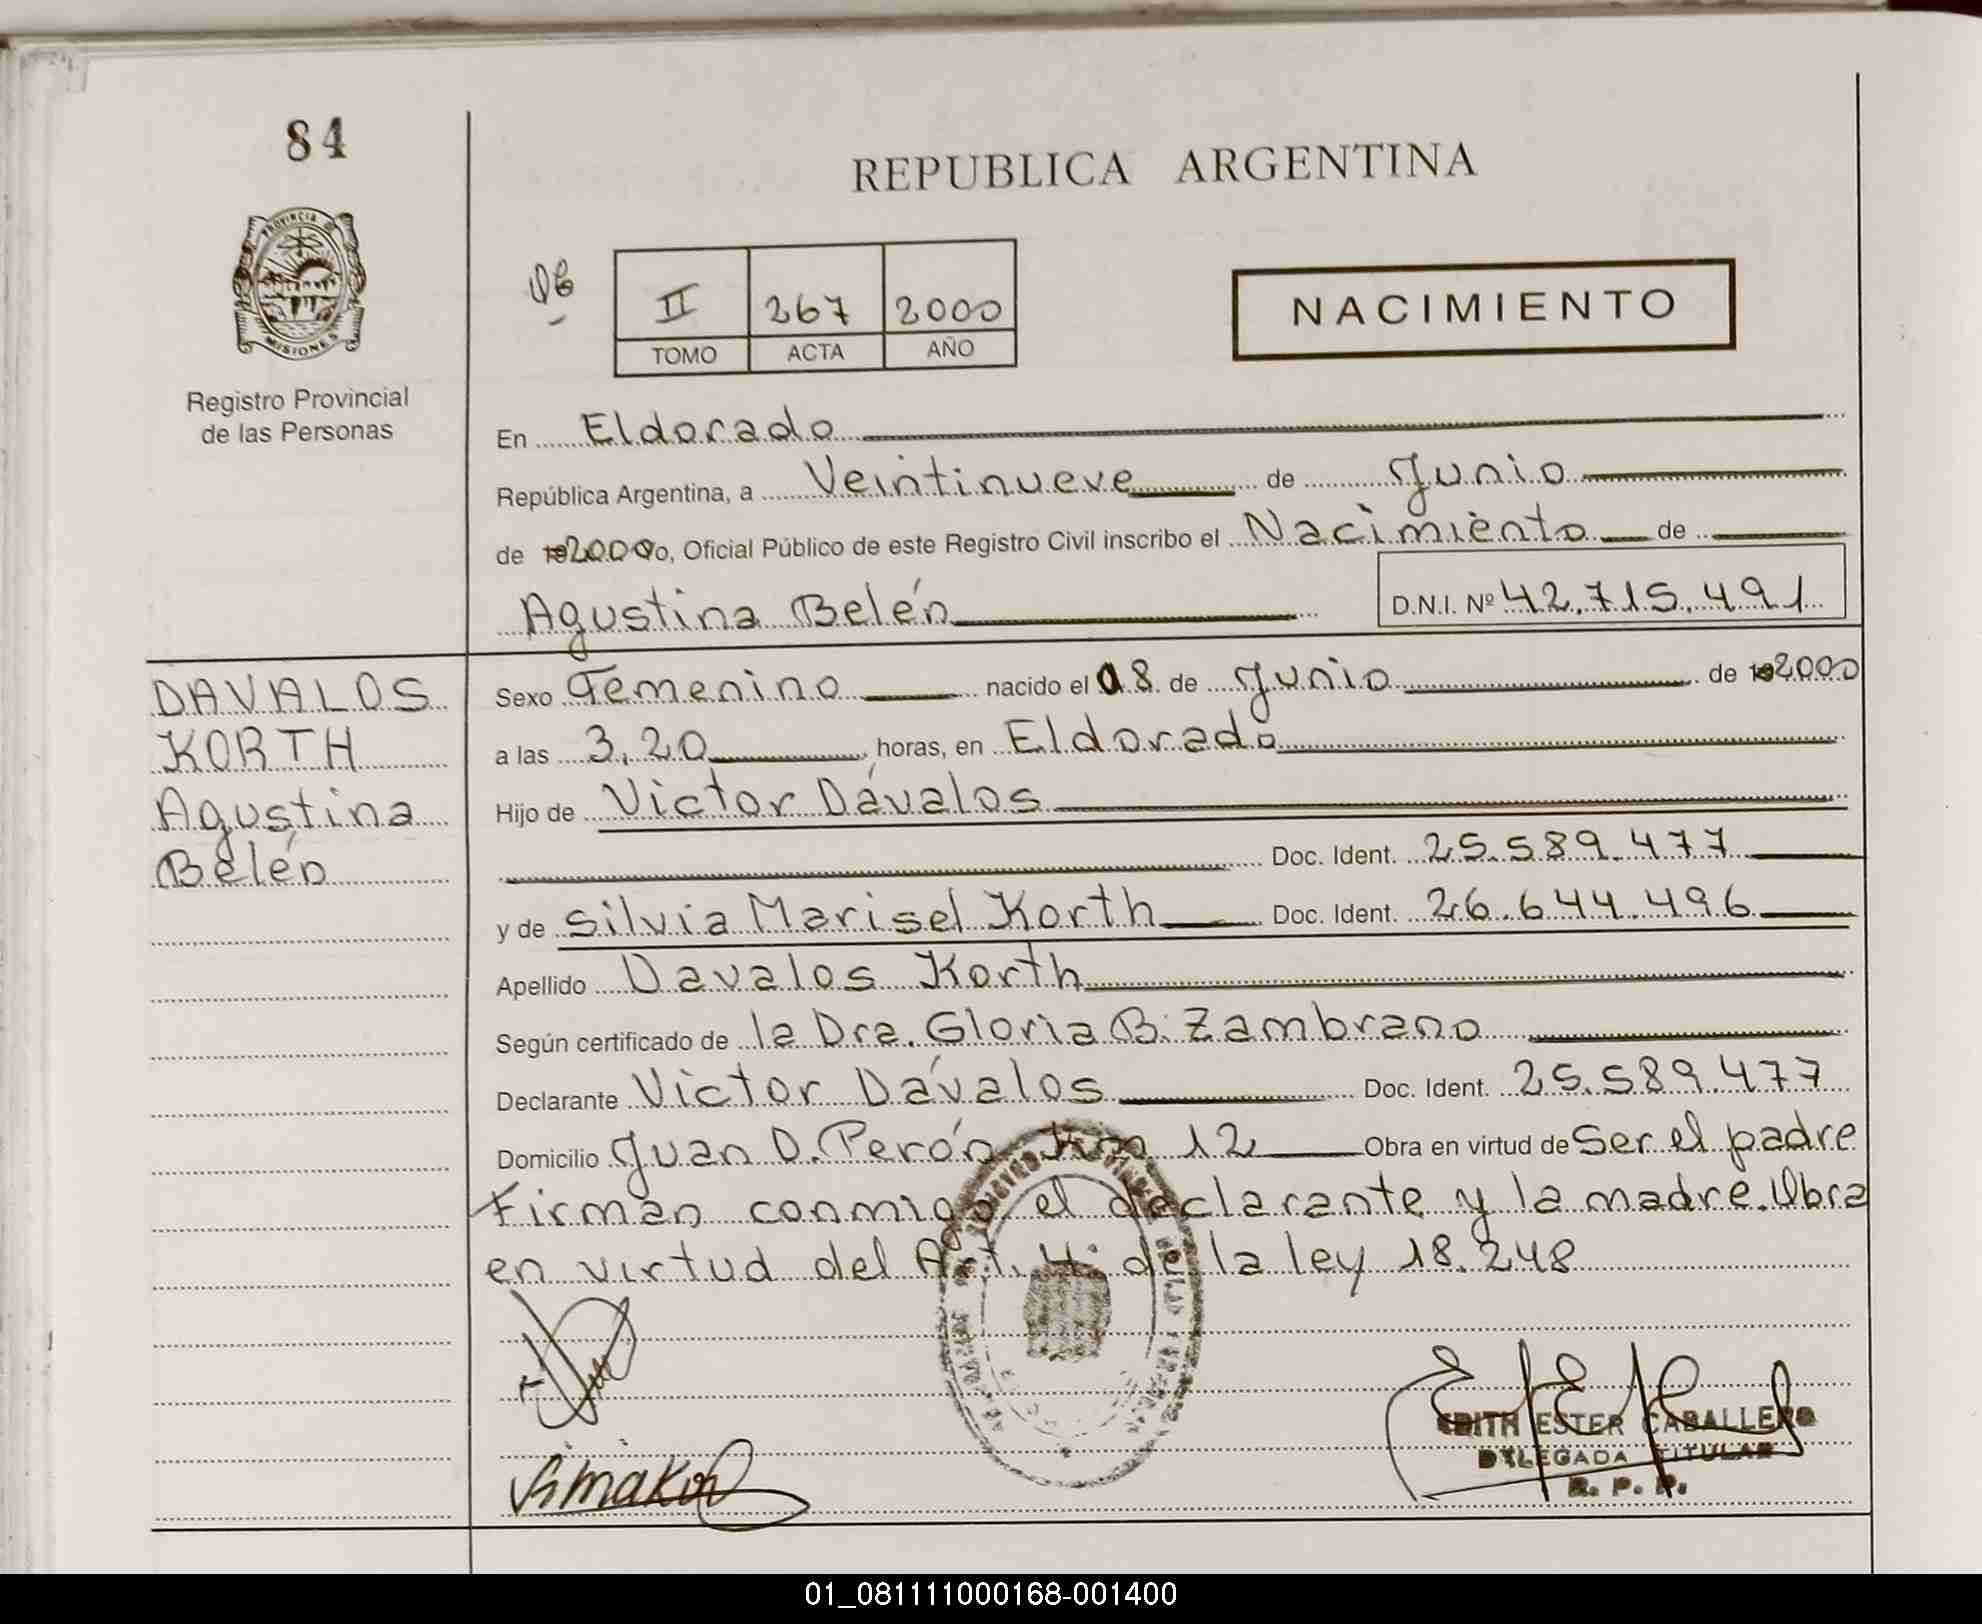 84
REPUBLICA ARGENTINA
PROVINCIA DE
MISIONES
Registro Provincial
de las Personas
II 267 2000
TOMO ACTA AÑO
NACIMIENTO
En Eldorado
República Argentina, a Veintinueve de Junio
de 192000 Yo, Oficial Público de este Registro Civil inscribo el Nacimiento de
Agustina Belén D.N.I. Nº 42.715.491
DAVALOS
KORTH
Agustina
Belén
Sexo Femenino nacido el 08 de Junio de 192000
a las 3,20 horas, en Eldorado
Hijo de Victor Dávalos
Doc. Ident. 25.589.477
y de Silvia Marisel Korth Doc. Ident. 26.644.496
Apellido Davalos Korth
Según certificado de la Dra. Gloria B. Zambrano
Declarante Victor Dávalos Doc. Ident. 25.589.477
Domicilio Juan D. Perón Km 12 Obra en virtud de Ser el padre
Firman conmigo el declarante y la madre. Obra
en virtud del Art. 4º de la ley 18.248
EDITH ESTER CABALLERO
DELEGADA TITULAR
R. P. P.
01_081111000168-001400